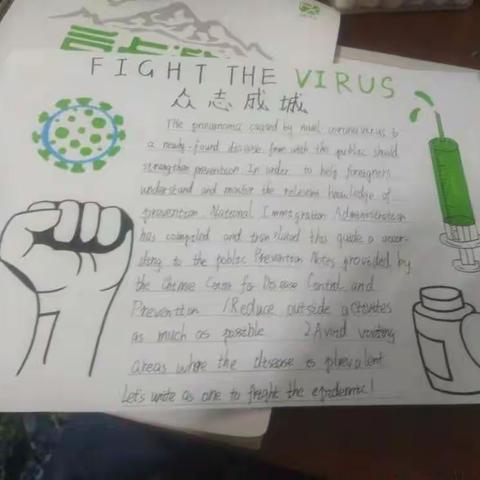 FIGHT THE VIRUS
众志成城
The pneumonia caused by novel coronavirus is
a newly-found disease from wich the public should
strengthen prevention In order to help foreigners
understand and master the relevant knowledge of
prevention. National Immigration Administration
has compiled and translated this guide a accor-
ding to the public Prevention Notes provided by
the Chinese Center for Disease Control and
Prevention 1Reduce outside activites
as much as possible 2Avoid visiting
areas where the disease is prevalent
Let's unite as one to fright the epidemic!